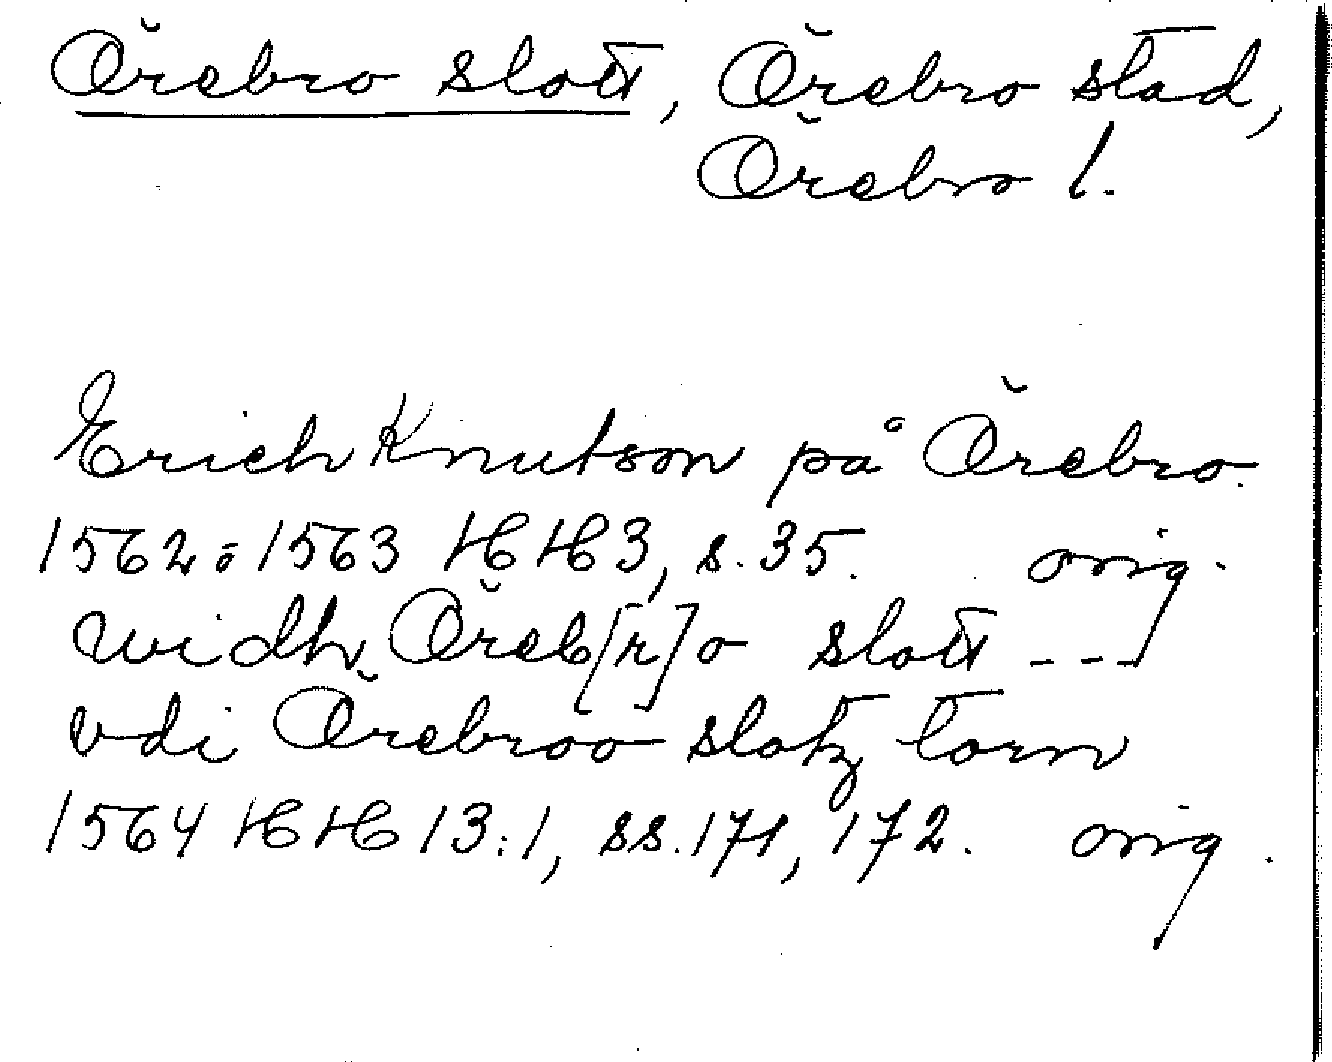 Örebro slott, Örebro stad,
Örebro l.
Erich Knutson på Örebro.
1562 ö 1563 HH 3, s. 35. orig.
widh Öreb[r]o slott ---
vdi Örebroo slotz torn
1564 HH 13:1, ss. 171, 172. orig.